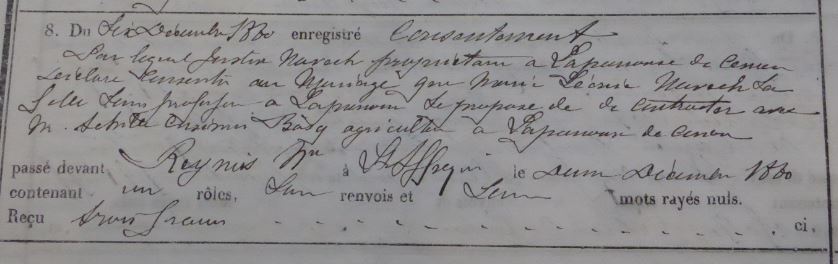 8. Du Six Décembre 1880 enregistré Consentement
Par lequel Justin Navech propriétaire à Lapanouse de Cernon
déclare Consentir au Mariage que Marie Léonie Navech Sa
fille Sans profession à Lapanouse Se propose de de Contracter avec
M. Achille Casimir Bosq agriculteur à Lapanouse de Cernon
passé devant Reynès Nre à St Affrique le Deux Décembre 1880
contenant un rôles, Sans renvois et Sans mots rayés nuls.
Reçu trois francs ci,